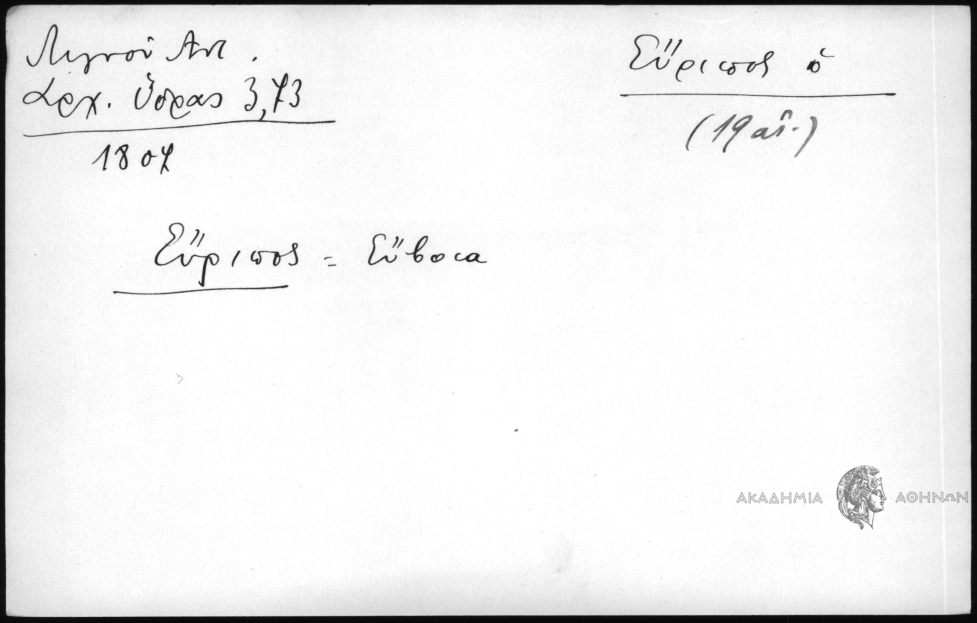 Λιγνού Αντ.
Αρχ. Ύδρας 3,73
1807
Εὔριπος ὁ
(19 αἰ.)
Εὔριπος = Εὔβοια
ΑΚΑΔΗΜΙΑ ΑΘΗΝΩΝ